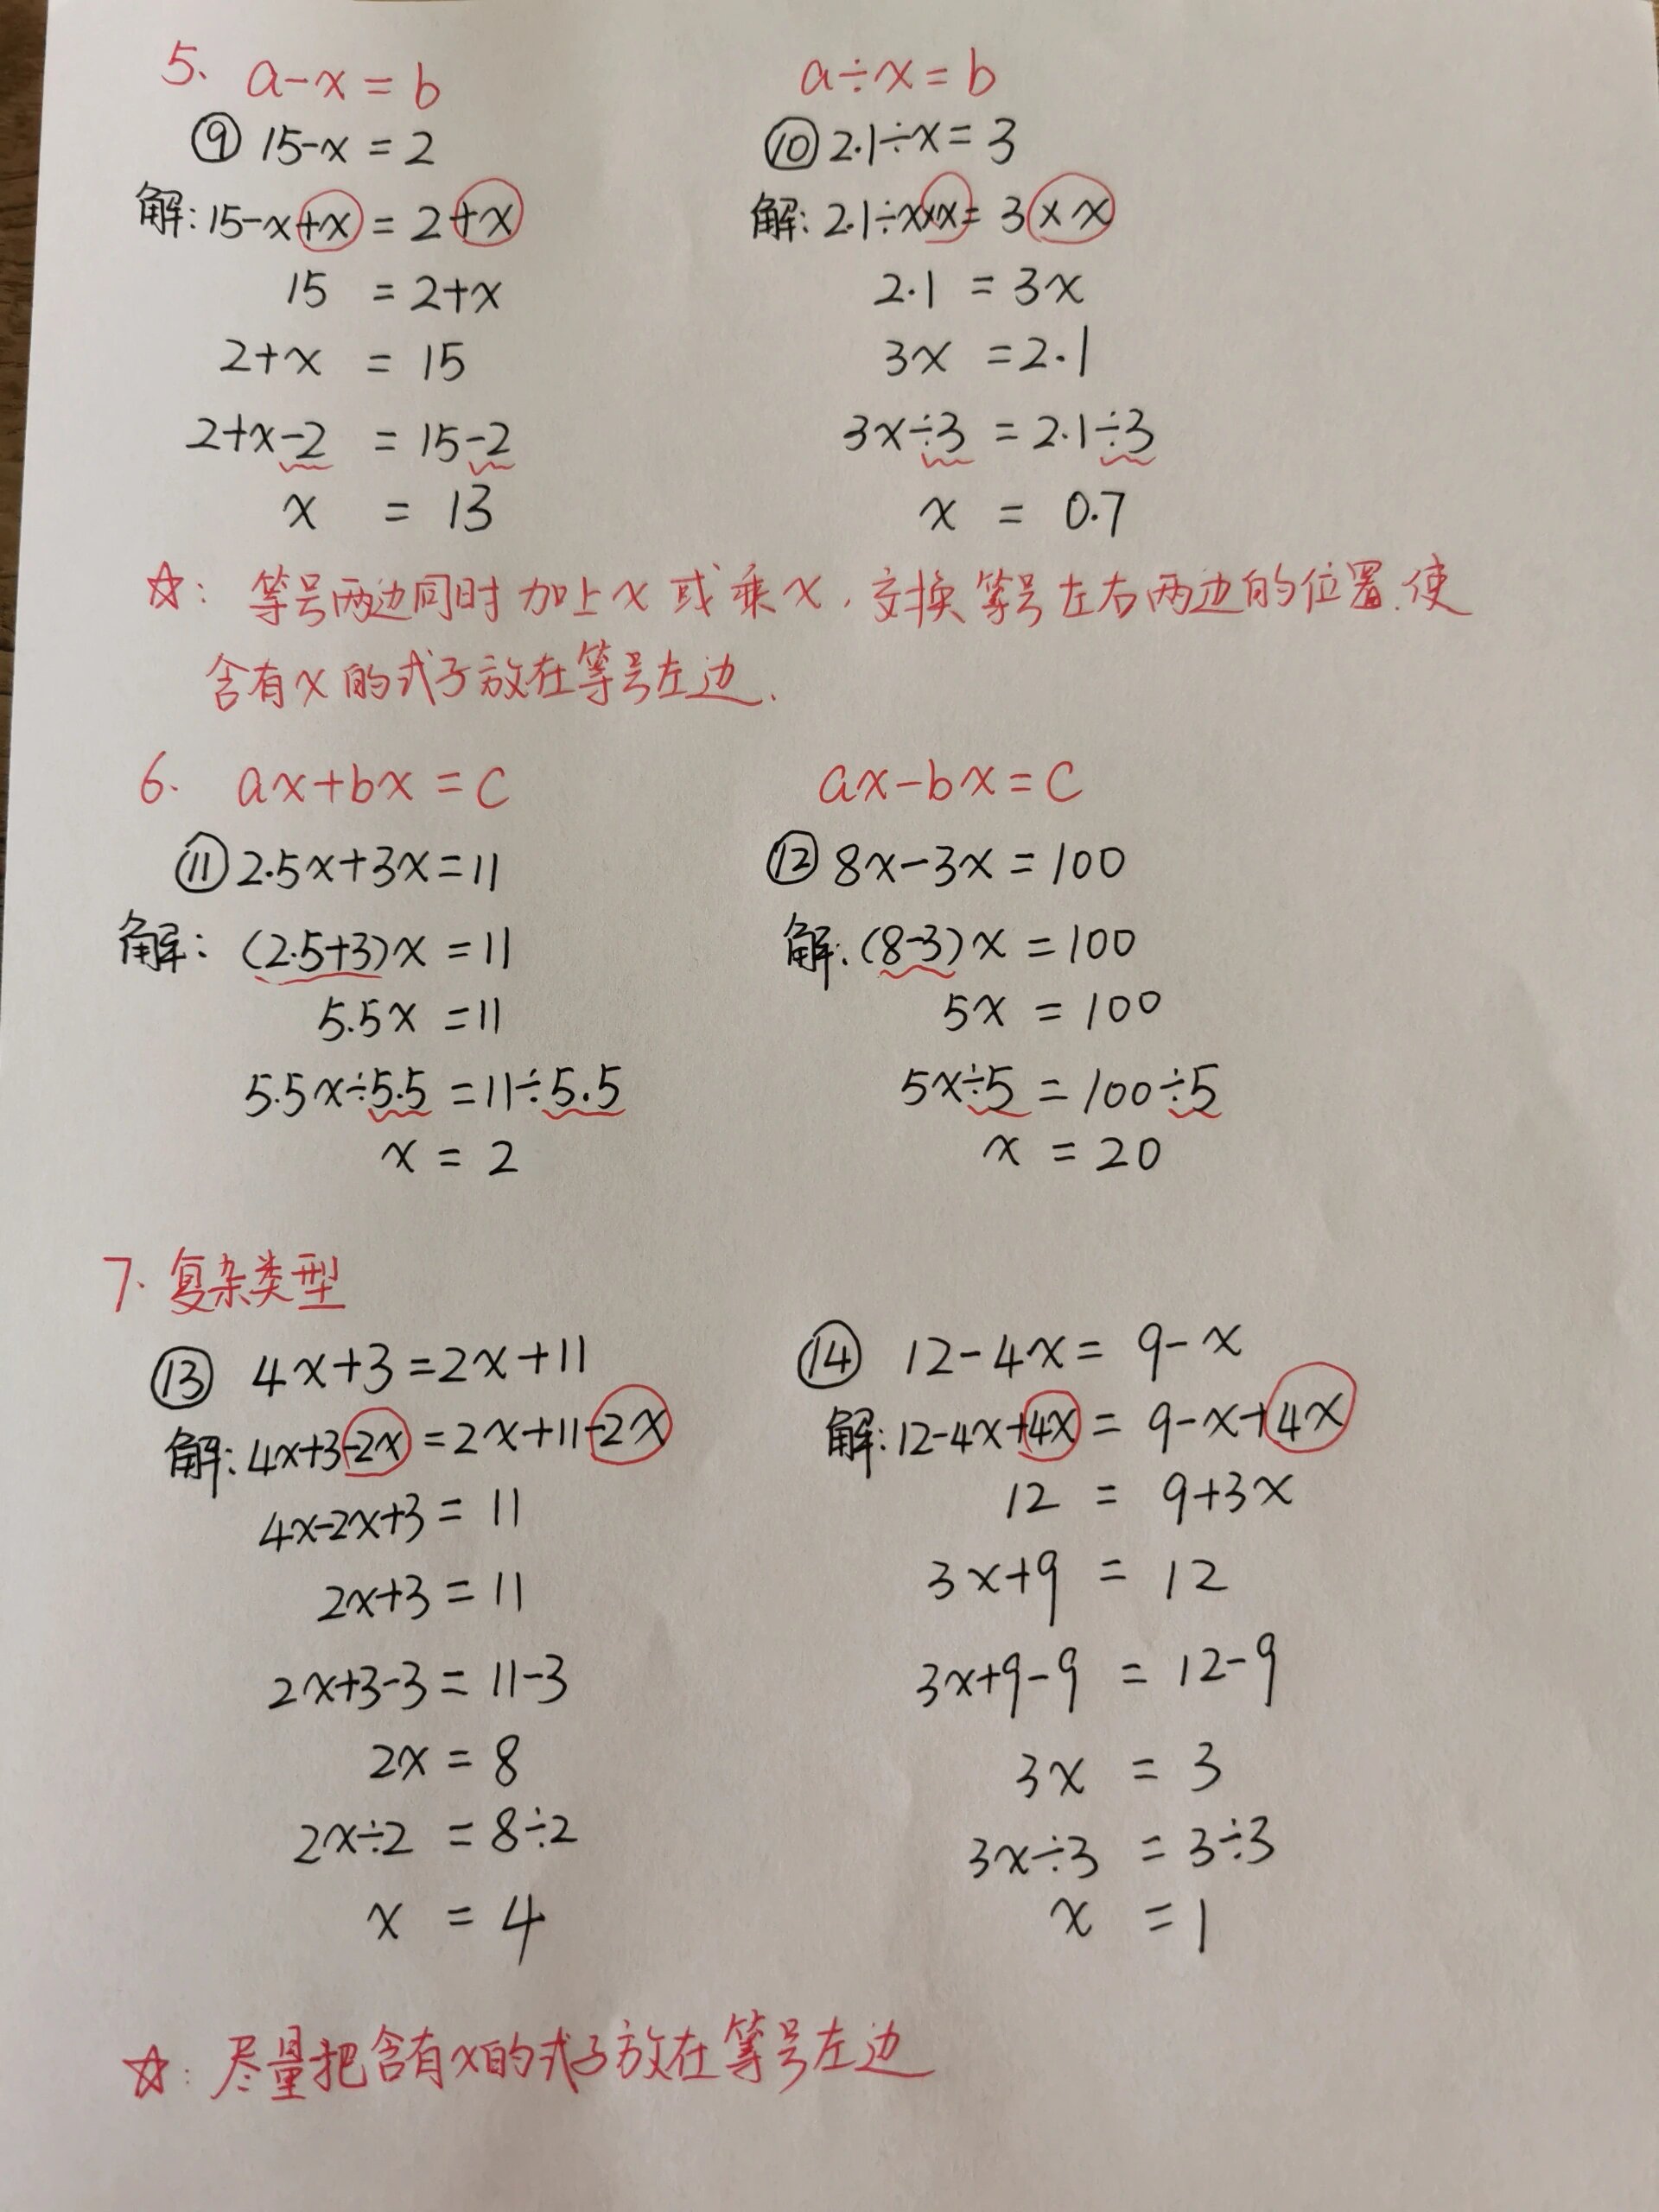 5. a-x=b
⑨ 15-x=2
解: 15-x+x=2+x
15=2+x
2+x=15
2+x-2=15-2
x=13
a÷x=b
⑩ 2.1÷x=3
解: 2.1÷x×x=3×x
2.1=3x
3x=2.1
3x÷3=2.1÷3
x=0.7
☆: 等号两边同时加上x或乘x,交换等号左右两边的位置.使
含有x的式子放在等号左边.
6. ax+bx=c
⑪ 2.5x+3x=11
解: (2.5+3)x=11
5.5x=11
5.5x÷5.5=11÷5.5
x=2
ax-bx=c
⑫ 8x-3x=100
解: (8-3)x=100
5x=100
5x÷5=100÷5
x=20
7. 复杂类型
⑬ 4x+3=2x+11
解: 4x+3-2x=2x+11-2x
4x-2x+3=11
2x+3=11
2x+3-3=11-3
2x=8
2x÷2=8÷2
x=4
⑭ 12-4x=9-x
解: 12-4x+4x=9-x+4x
12=9+3x
3x+9=12
3x+9-9=12-9
3x=3
3x÷3=3÷3
x=1
☆: 尽量把含有x的式子放在等号左边